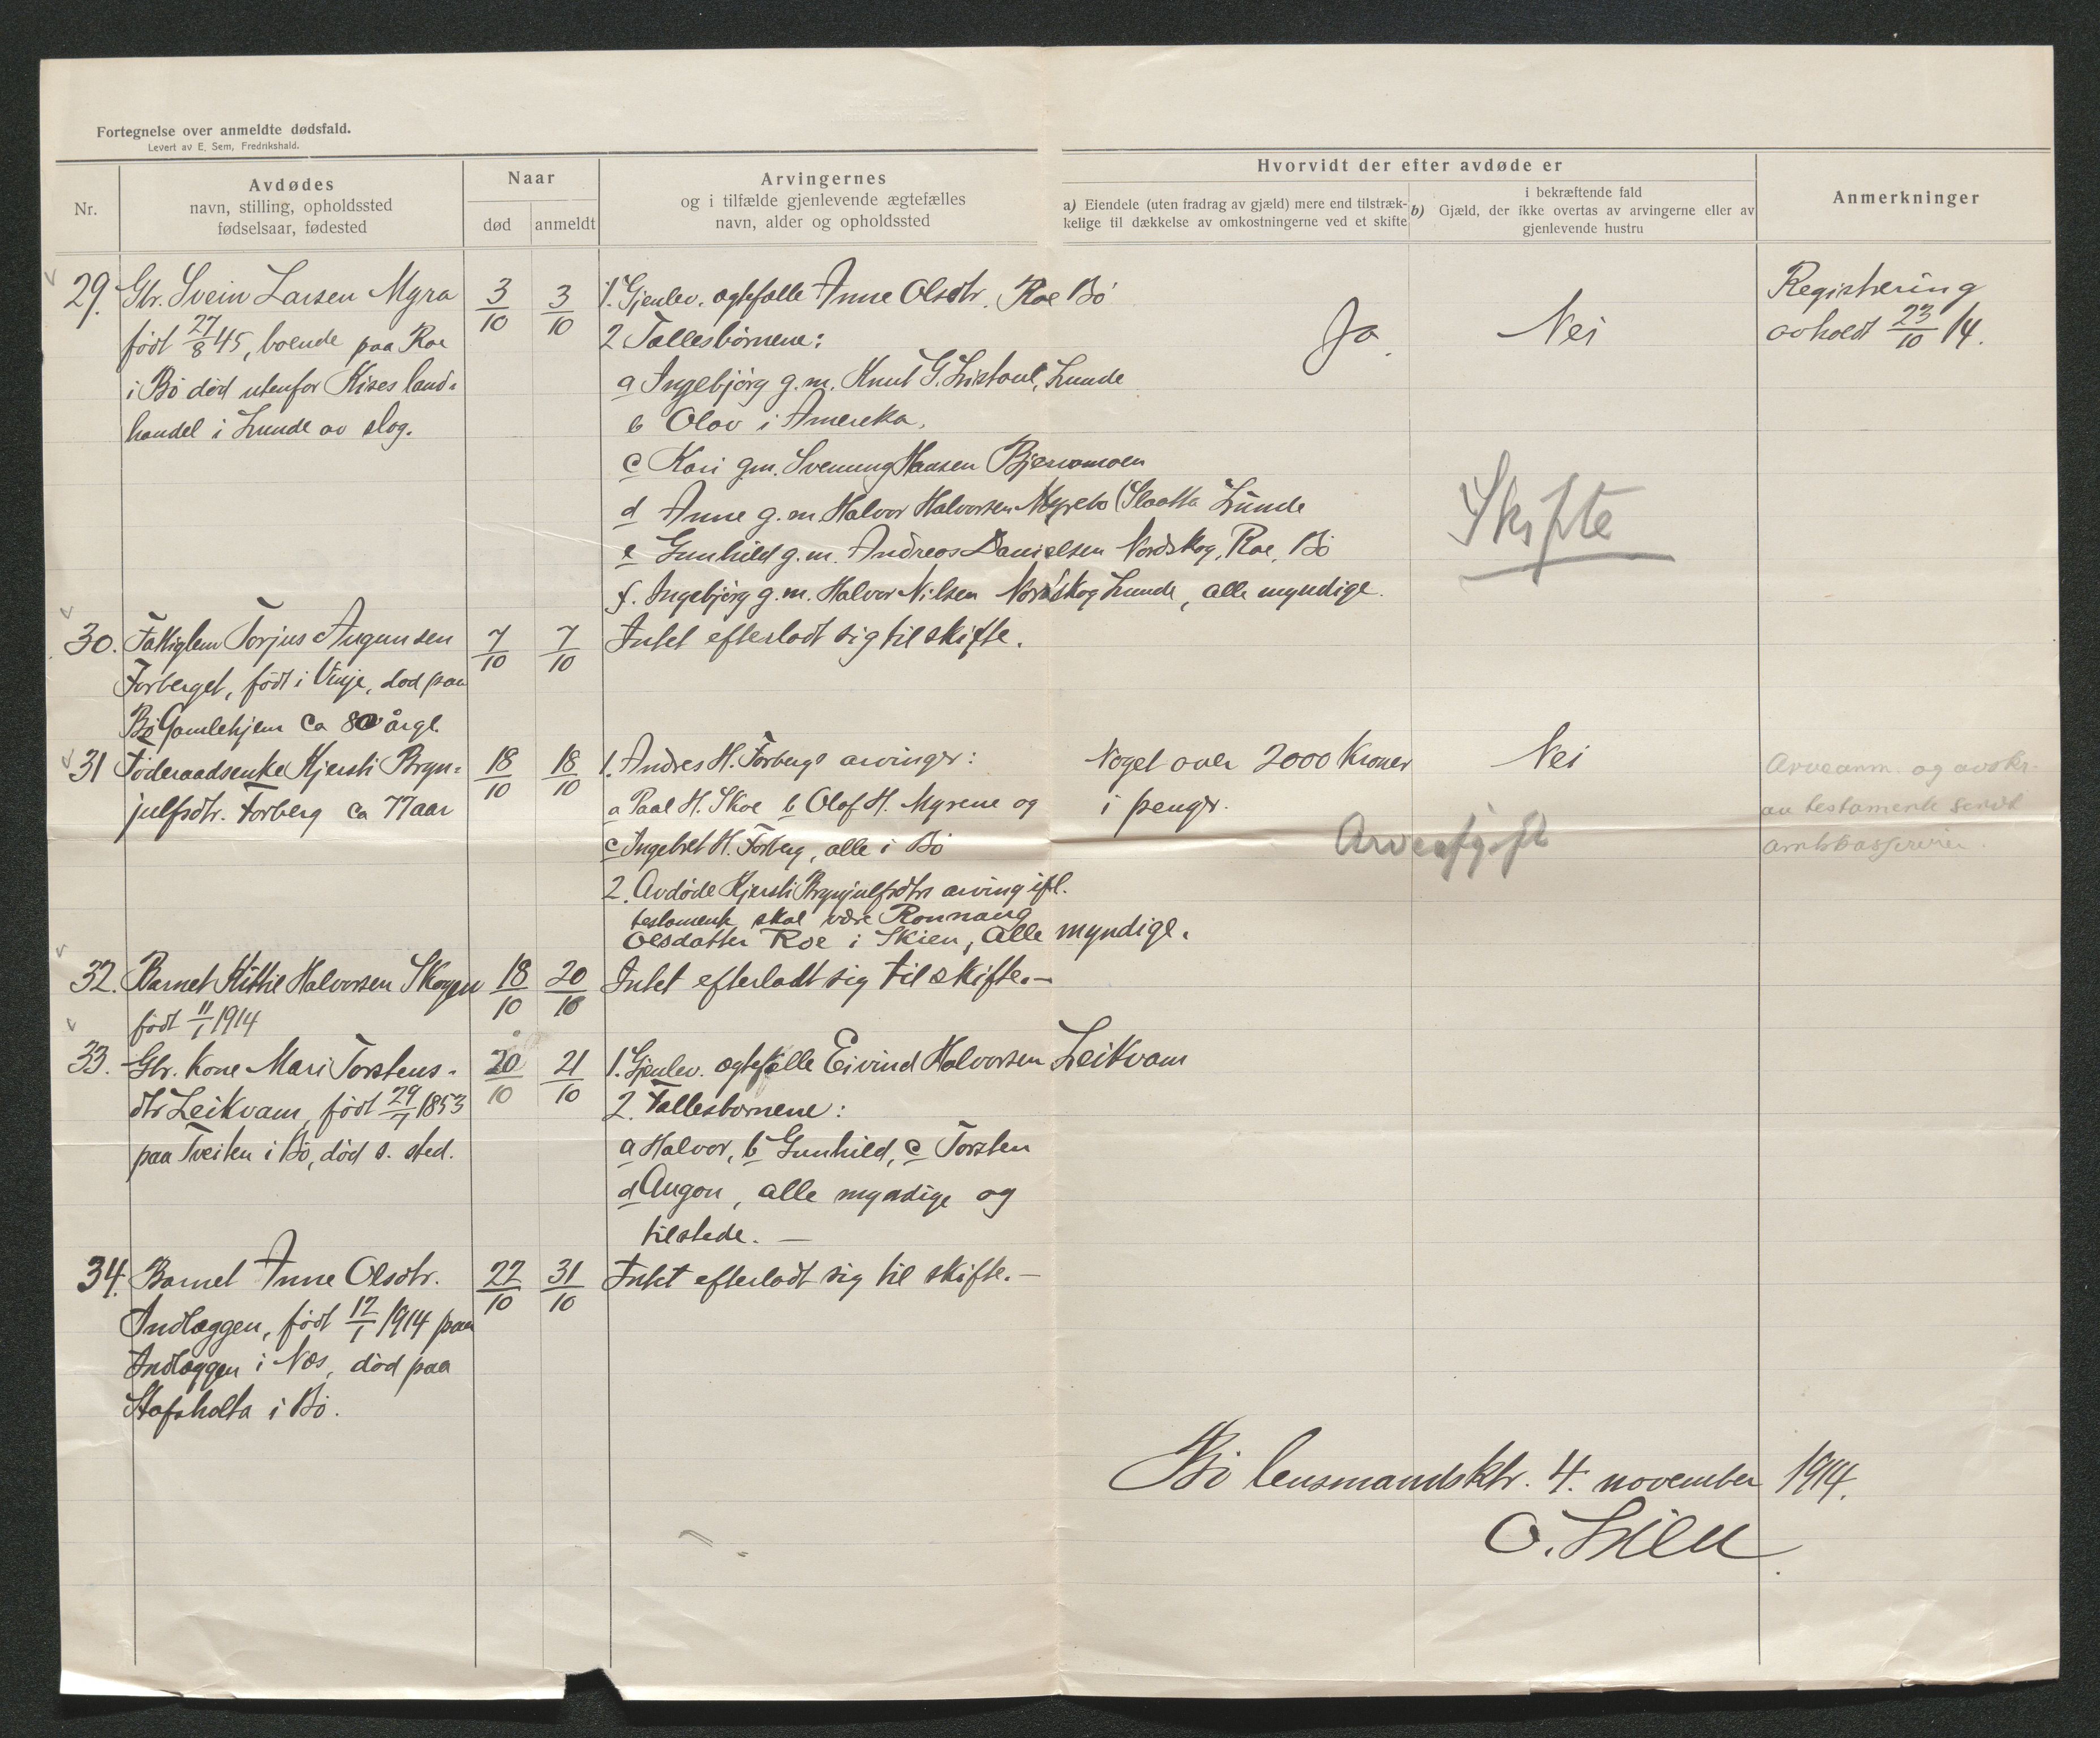 Fortegnelse over anmeldte dødsfald.
Levert av E. Sem, Fredrikshald.
Nr.
Avdødes
navn, stilling, opholdssted
fødselsaar, fødested
Naar
død
anmeldt
Arvingernes
og i tilfælde gjenlevende ægtefælles
navn, alder og opholdssted
Hvorvidt der efter avdøde er
a) Eiendele (uten fradrag av gjæld) mere end tilstræk-
kelige til dækkelse av omkostningerne ved et skifte
i bekræftende fald
b) Gjæld, der ikke overtas av arvingerne eller av
gjenlevende hustru
Anmerkninger
29. Gbr. Svein Larsen Myra
født 27/8 45, boende paa Roe
i Bö död utenfor Kises land=
handel i Lunde av slag.
3/10
3/10
1. Gjenlev. egtefælle Anne Olsdtr. Roe Bö
2 Fællesbörnene:
a Ingebjörg g.m. Knut G. Listaul, Lunde
b Olav i Amereka.
c Kari gm. Svenung Hansen
d Anne g.m. Halvor Halvorsen Myrebö (Slaatta Lunde
e Gunhild g.m. Andreas Danielsen Nordskog, Roe, Bö
f. Ingebjörg g.m. Halvor Nilsen Nordskog Lunde, alle myndige.
Ja
Nei
Skifte
Registrering
avholdt 23/10 14.
30. Fattiglem Torjus Augunsen
Forberget, födt i Vinje, död paa
Bö Gamlehjem ca 80 årgl.
7/10
7/10
Intet efterladt sig til skifte.
31 Föderaadsenke Kjersti Bryn=
julfsdtr. Forberg ca 77 aar
18/10
18/10
1. Andres H. Forbergs arvinger:
a Paal H. Skoe b Olof H. Myrene og
c Ingebret H. Forberg, alle i Bö
2. Avdøde Kjersti Brynjulfsdtrs arving ifl.
testamente skal være Ronnaug
Olsdatter Roe i Skien, Alle myndige.
Noget over 2000 Kroner
i penger.
Nei
Arveafgift
Arveanm. og avskr.
av testamente sendt
amtskasserer
32. Barnet Kittil Halvorsen Skogen
födt 11/1 1914
18/10
20/10
Intet efterladt sig til skifte.–
33. Gbr. kone Mari Torstens-
dtr Leikvam, födt 29/7 1853
paa Tveiten i Bö, död s. sted.
20/10
21/10
1. Gjenlev. egtefælle Eivind Halvorsen Leikvam
2. Fællesbörnene:
a Halvor, b Gunhild, c Torsten
d Augon, alle myndige og
tilstede. –
34. Barnet Anne Olsdtr.
Indlæggen, födt 12/1 1914 paa
Indlæggen i Nes, död paa
Stafsholta i Bö.
22/10
31/10
Intet efterladt sig til skifte.–
Bö lensmandsktr. 4. november 1914.
O. Lien